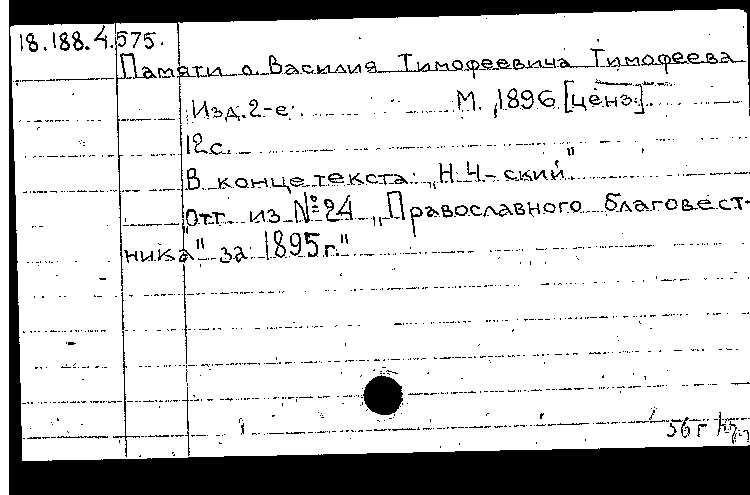 18.188.4.575.
Памяти о. Василия Тимофеевича Тимофеева
Изд. 2-е. М., 1896 [ценз.].
12 с.
В конце текста: „Н. Ч-ский"
„Отт. из № 24 „Православного благовест-
ника" за 1895 г."
56 г